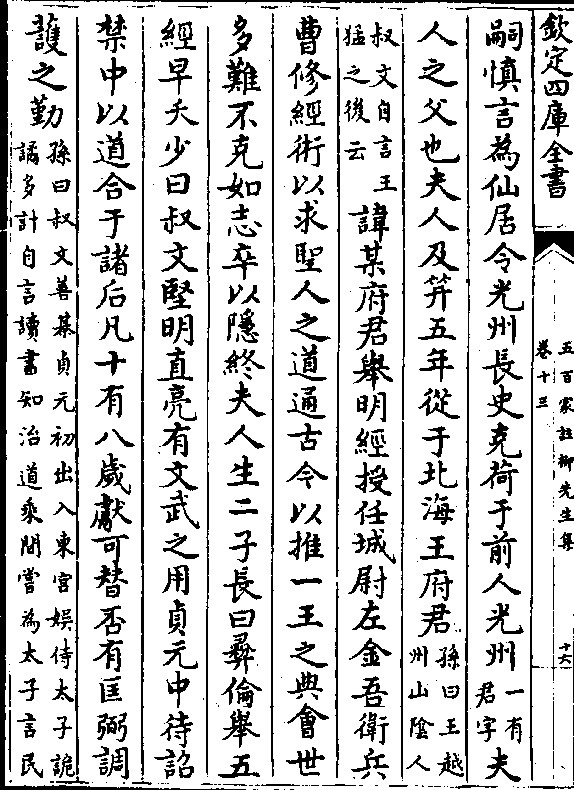 欽定四庫全書
五百家註柳先生集
卷十三
十六
嗣慎言為仙居令光州長史克荷于前人光州一有君字夫
人之父也夫人及笄五年從于北海王府君孫曰王越州山陰人
叔文自言王猛之後云諱某府君舉明經授任城尉左金吾衛兵
曹修經術以求聖人之道通古今以推一王之典會世
多難不克如志卒以隱終夫人生二子長曰彝倫舉五
經早夭少曰叔文堅明直亮有文武之用貞元中待詔
禁中以道合于諸后凡十有八歲獻可替否有匡弼調
護之勤孫曰叔文善棊貞元初出入東宮娛侍太子詭譎多計自言讀書知治道乘間嘗為太子言民